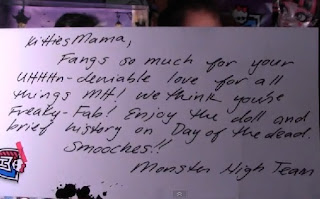 KittiesMama,
Fangs so much for your
UHHHn-deniable love for all
things MH! We think you're
Freaky-Fab! Enjoy the doll and
brief history on Day of the dead.
Smooches!!
Monster High Team